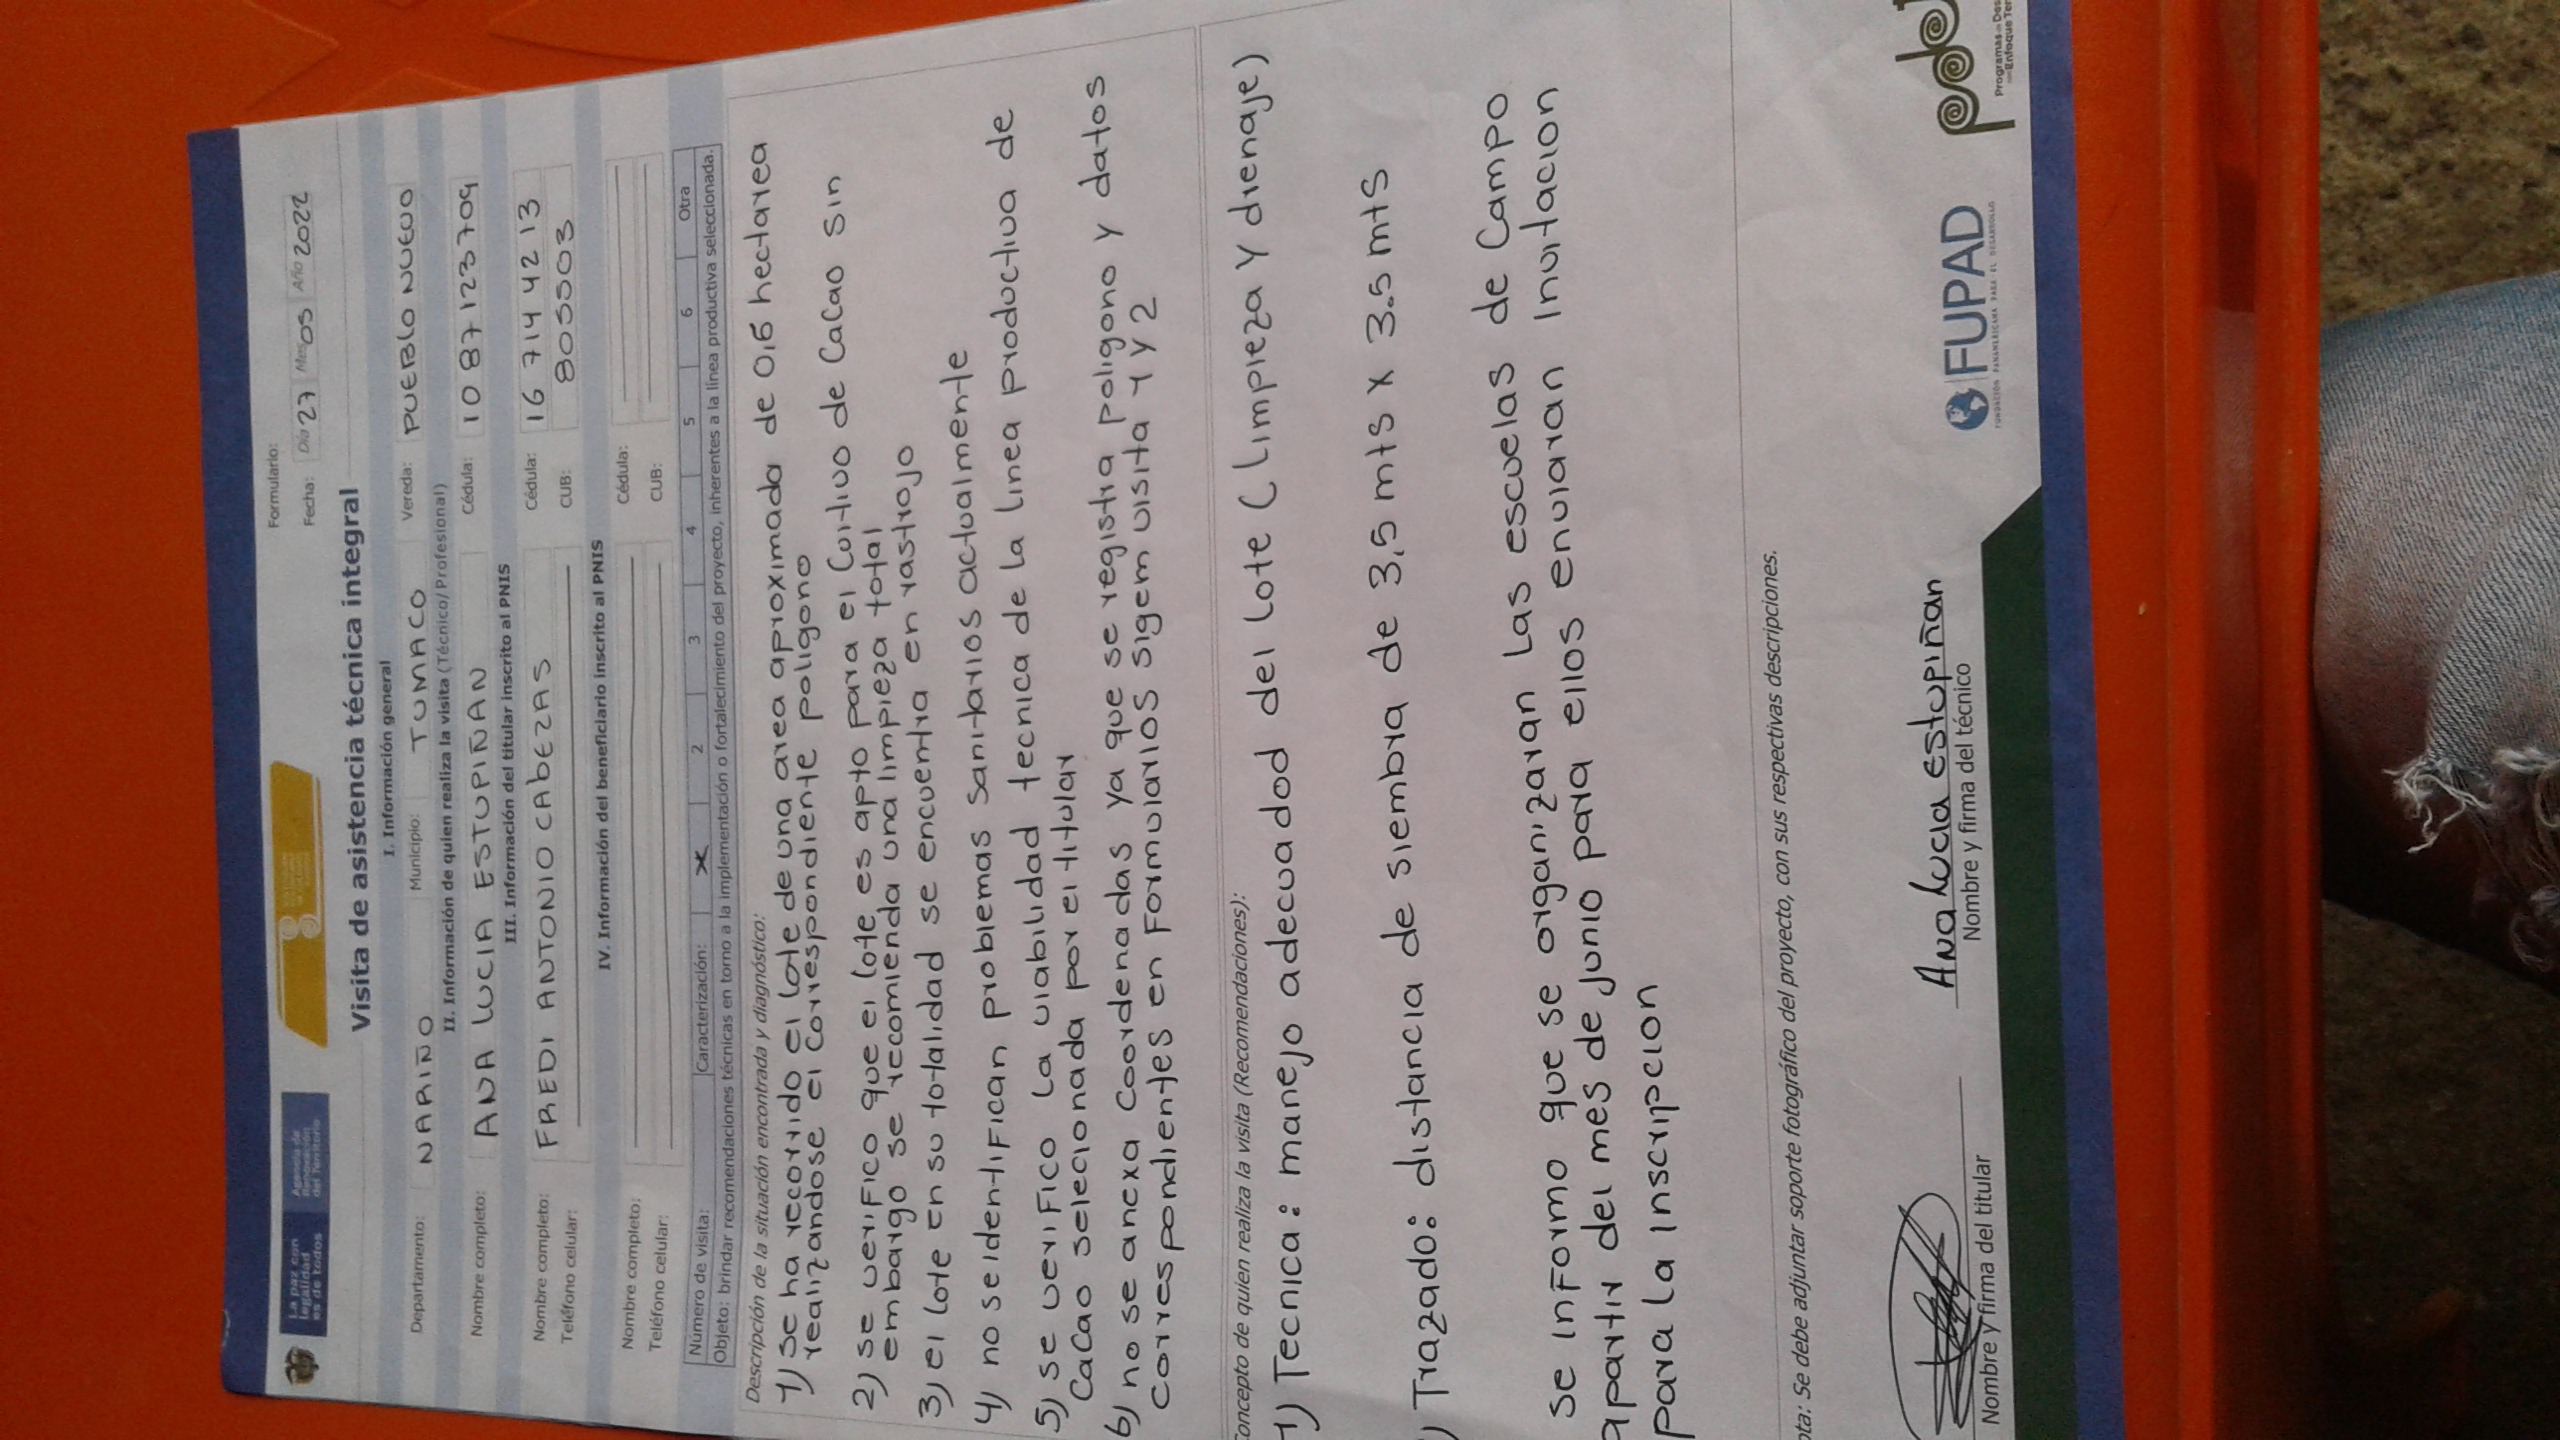 La paz con
legalidad
es de todos
Agencia de
Renovación
del Territorio
Formulario:
Fecha: Día 27 Mes 05 Año 2022
Visita de asistencia técnica integral
I. Información general
Departamento: NARIÑO Municipio: TUMACO Vereda: PUEBLO NUEVO
II. Información de quien realiza la visita (Técnico/Profesional)
Nombre completo: ANA LUCIA ESTUPIÑAN Cédula: 1087123709
III. Información del titular inscrito al PNIS
Nombre completo: FREDI ANTONIO CABEZAS Cédula: 16 714 42 13
Teléfono celular: CUB: 805503
IV. Información del beneficiario inscrito al PNIS
Nombre completo: Cédula:
Teléfono celular: CUB:
Número de visita: Caracterización: X 2 3 4 5 6 Otra
Objeto: brindar recomendaciones técnicas en torno a la implementación o fortalecimiento del proyecto, inherentes a la línea productiva seleccionada.
Descripción de la situación encontrada y diagnóstico:
1) Se ha recorrido el lote de una area aproximada de 0,6 hectarea
realizandose el correspondiente poligono
2) se verifico que el lote es apto para el Cultivo de Cacao sin
embargo se recomienda una limpieza total
3) el lote en su totalidad se encuentra en rastrojo
4) no se identifican problemas sanitarios actualmente
5) se verifico la viabilidad tecnica de la linea productiva de
Cacao selecionada por el titular
6) no se anexa Coordenadas ya que se registra poligono y datos
correspondientes en Formularios sigem visita 1 y 2
Concepto de quien realiza la visita (Recomendaciones):
1) Tecnica: manejo adecuadod del lote (limpieza y drenaje)
) Trazado: distancia de siembra de 3,5 mts x 3.5 mts
se informo que se organizaran las escuelas de Campo
apartir del mes de junio para ellos enviaran Invitacion
para la inscripcion
ota: Se debe adjuntar soporte fotográfico del proyecto, con sus respectivas descripciones.
Ana Lucia estupiñan
Nombre y firma del titular
Nombre y firma del técnico
FUPAD
FUNDACIÓN PANAMERICANA PARA EL DESARROLLO
pdet
Programas de Des
con Enfoque Ter